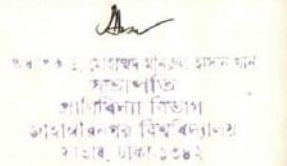 মোহাম্মদ মনিরুল হাসান খান
সভাপতি
প্রাণিবিদ্যা বিভাগ
জাহাঙ্গীরনগর বিশ্ববিদ্যালয়
সাভার, ঢাকা-১৩৪২